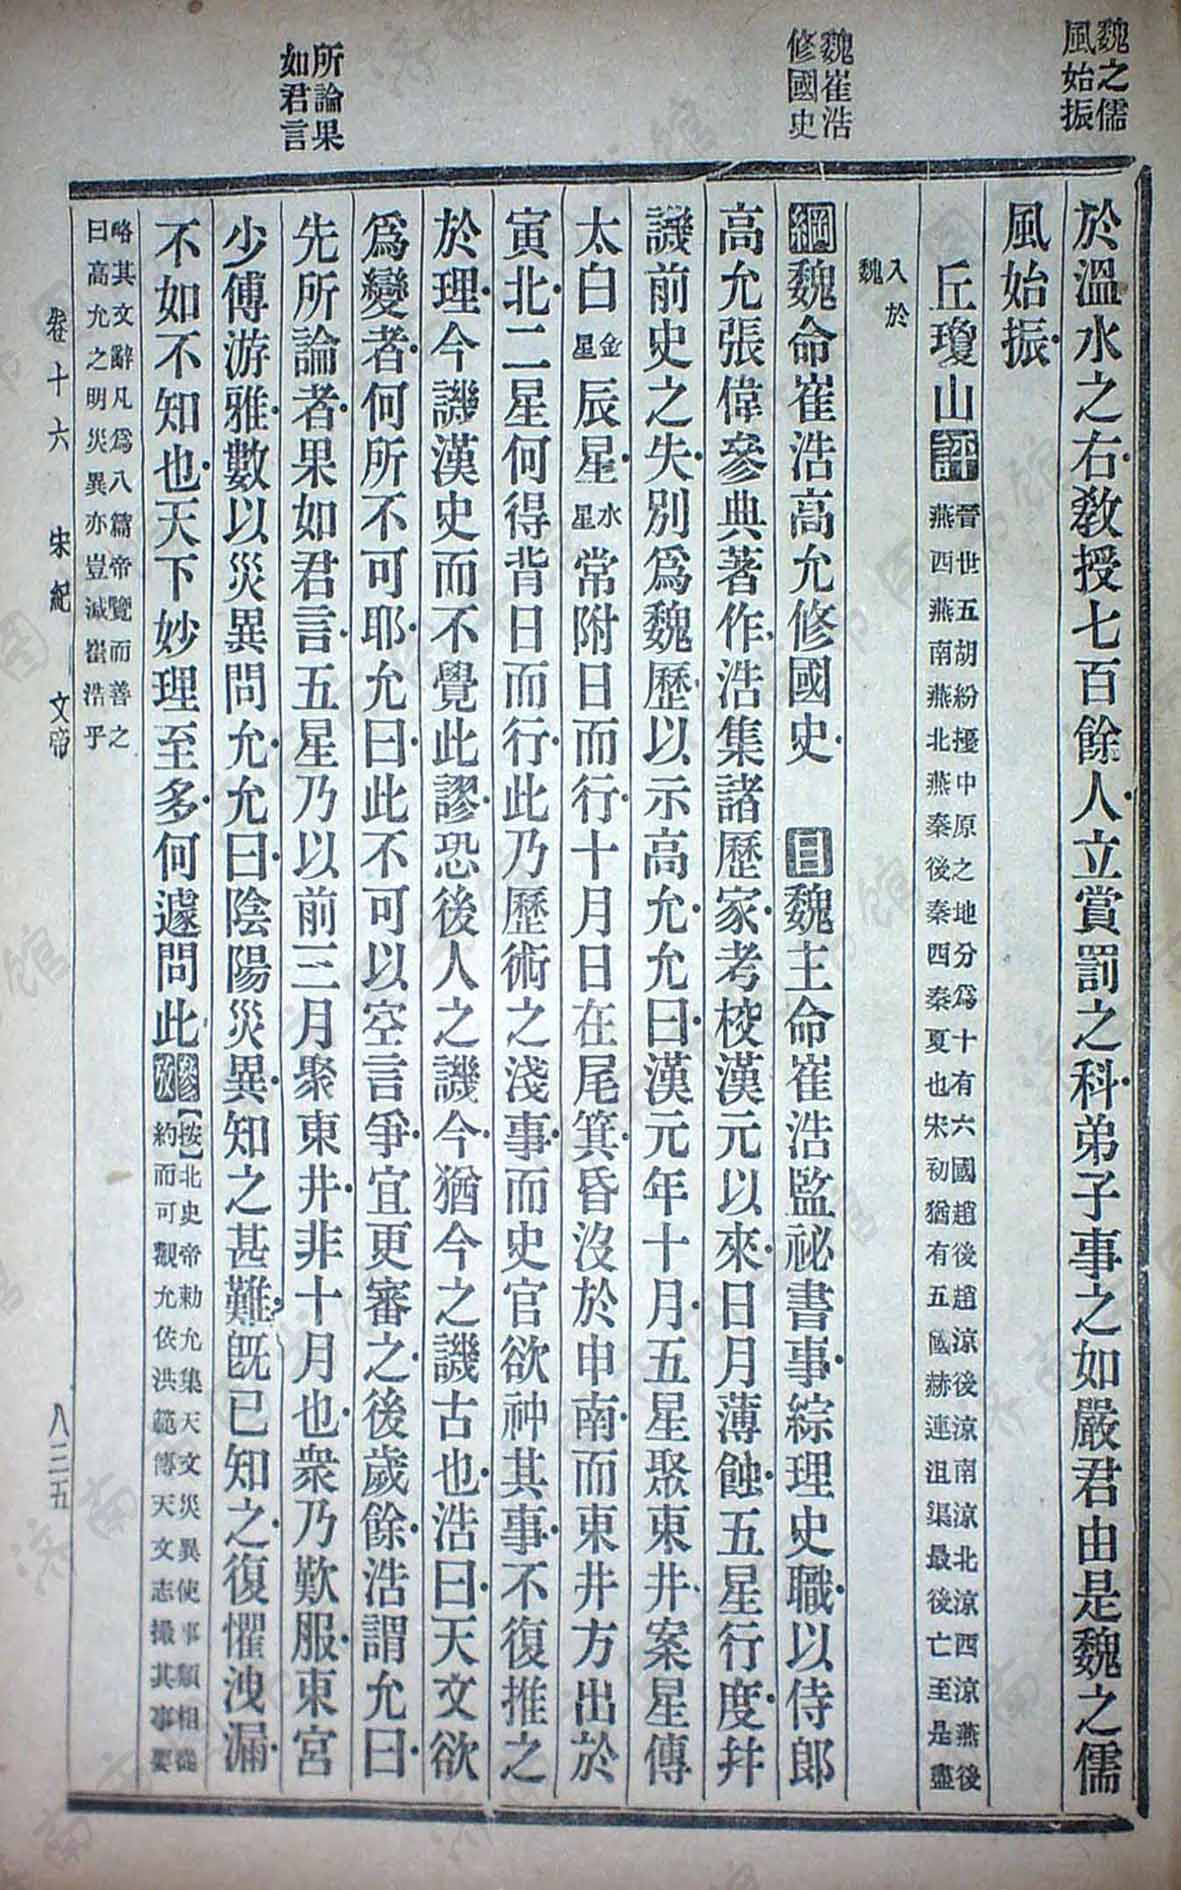 魏之儒
風始振
魏崔浩
修國史
所論果
如君言
於溫水之右教授七百餘人立賞罰之科弟子事之如嚴君由是魏之儒
風始振
丘瓊山評晉世五胡紛擾中原之地分爲十有六國趙後趙涼後涼南涼北涼西涼燕後
燕西燕南燕北燕秦後秦西秦夏也宋初猶有五國赫連沮渠最後亡至是盡
入於
魏
綱魏命崔浩高允修國史 目魏主命崔浩監祕書事綜理史職以侍郎
高允張偉參典著作浩集諸歷家考校漢元以來日月薄蝕五星行度幷
譏前史之失別爲魏歷以示高允允曰漢元年十月五星聚東井案星傳
太白金星辰星水星常附日而行十月日在尾箕昏沒於申南而東井方出於
寅北二星何得背日而行此乃歷術之淺事而史官欲神其事不復推之
於理今譏漢史而不覺此謬恐後人之譏今猶今之譏古也浩曰天文欲
爲變者何所不可耶允曰此不可以空言爭宜更審之後歲餘浩謂允曰
先所論者果如君言五星乃以前三月聚東井非十月也衆乃歎服東宮
少傅游雅數以災異問允允曰陰陽災異知之甚難旣已知之復懼洩漏
不如不知也天下妙理至多何遽問此參攷【按】北史帝勅允集天文災異使事類相從
約而可觀允依洪範傳天文志撮其事要
略其文辭凡爲八篇帝覽而善之
曰高允之明災異亦豈減崔浩乎
卷十六 宋紀 文帝 八三五